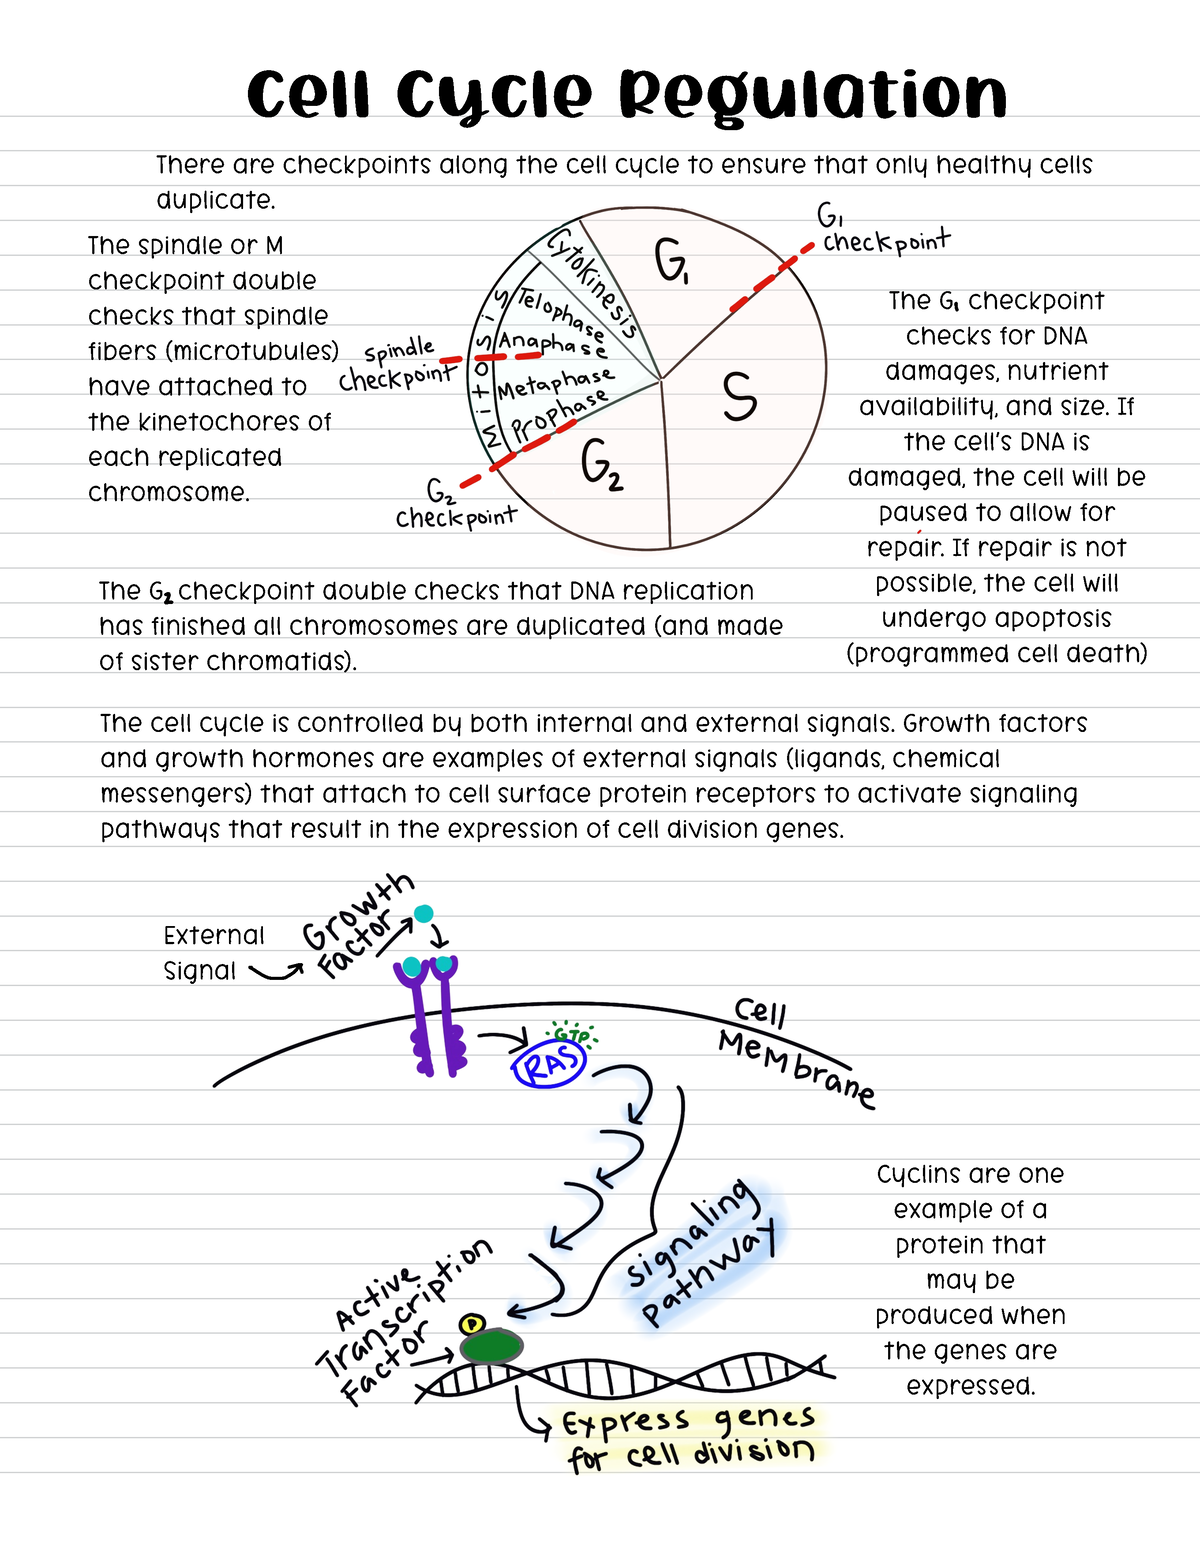 Cell Cycle Regulation
There are checkpoints along the cell cycle to ensure that only healthy cells
duplicate.
The spindle or M
checkpoint double
checks that spindle
fibers (microtubules)
have attached to
the kinetochores of
each replicated
chromosome.
G₁
checkpoint
G₁
S
G₂
Cytokinesis
Telophase
Anaphase
Metaphase
Prophase
Mitosis
Spindle
checkpoint
G₂
checkpoint
The G₁ checkpoint
checks for DNA
damages, nutrient
availability, and size. If
the cell's DNA is
damaged, the cell will be
paused to allow for
repair. If repair is not
possible, the cell will
undergo apoptosis
(programmed cell death)
The G₂ checkpoint double checks that DNA replication
has finished all chromosomes are duplicated (and made
of sister chromatids).
The cell cycle is controlled by both internal and external signals. Growth factors
and growth hormones are examples of external signals (ligands, chemical
messengers) that attach to cell surface protein receptors to activate signaling
pathways that result in the expression of cell division genes.
External
Signal
Growth
Factor
Cell
Membrane
GTP
RAS
Signaling
pathway
Active
Transcription
Factor
P
Express genes
for cell division
Cyclins are one
example of a
protein that
may be
produced when
the genes are
expressed.